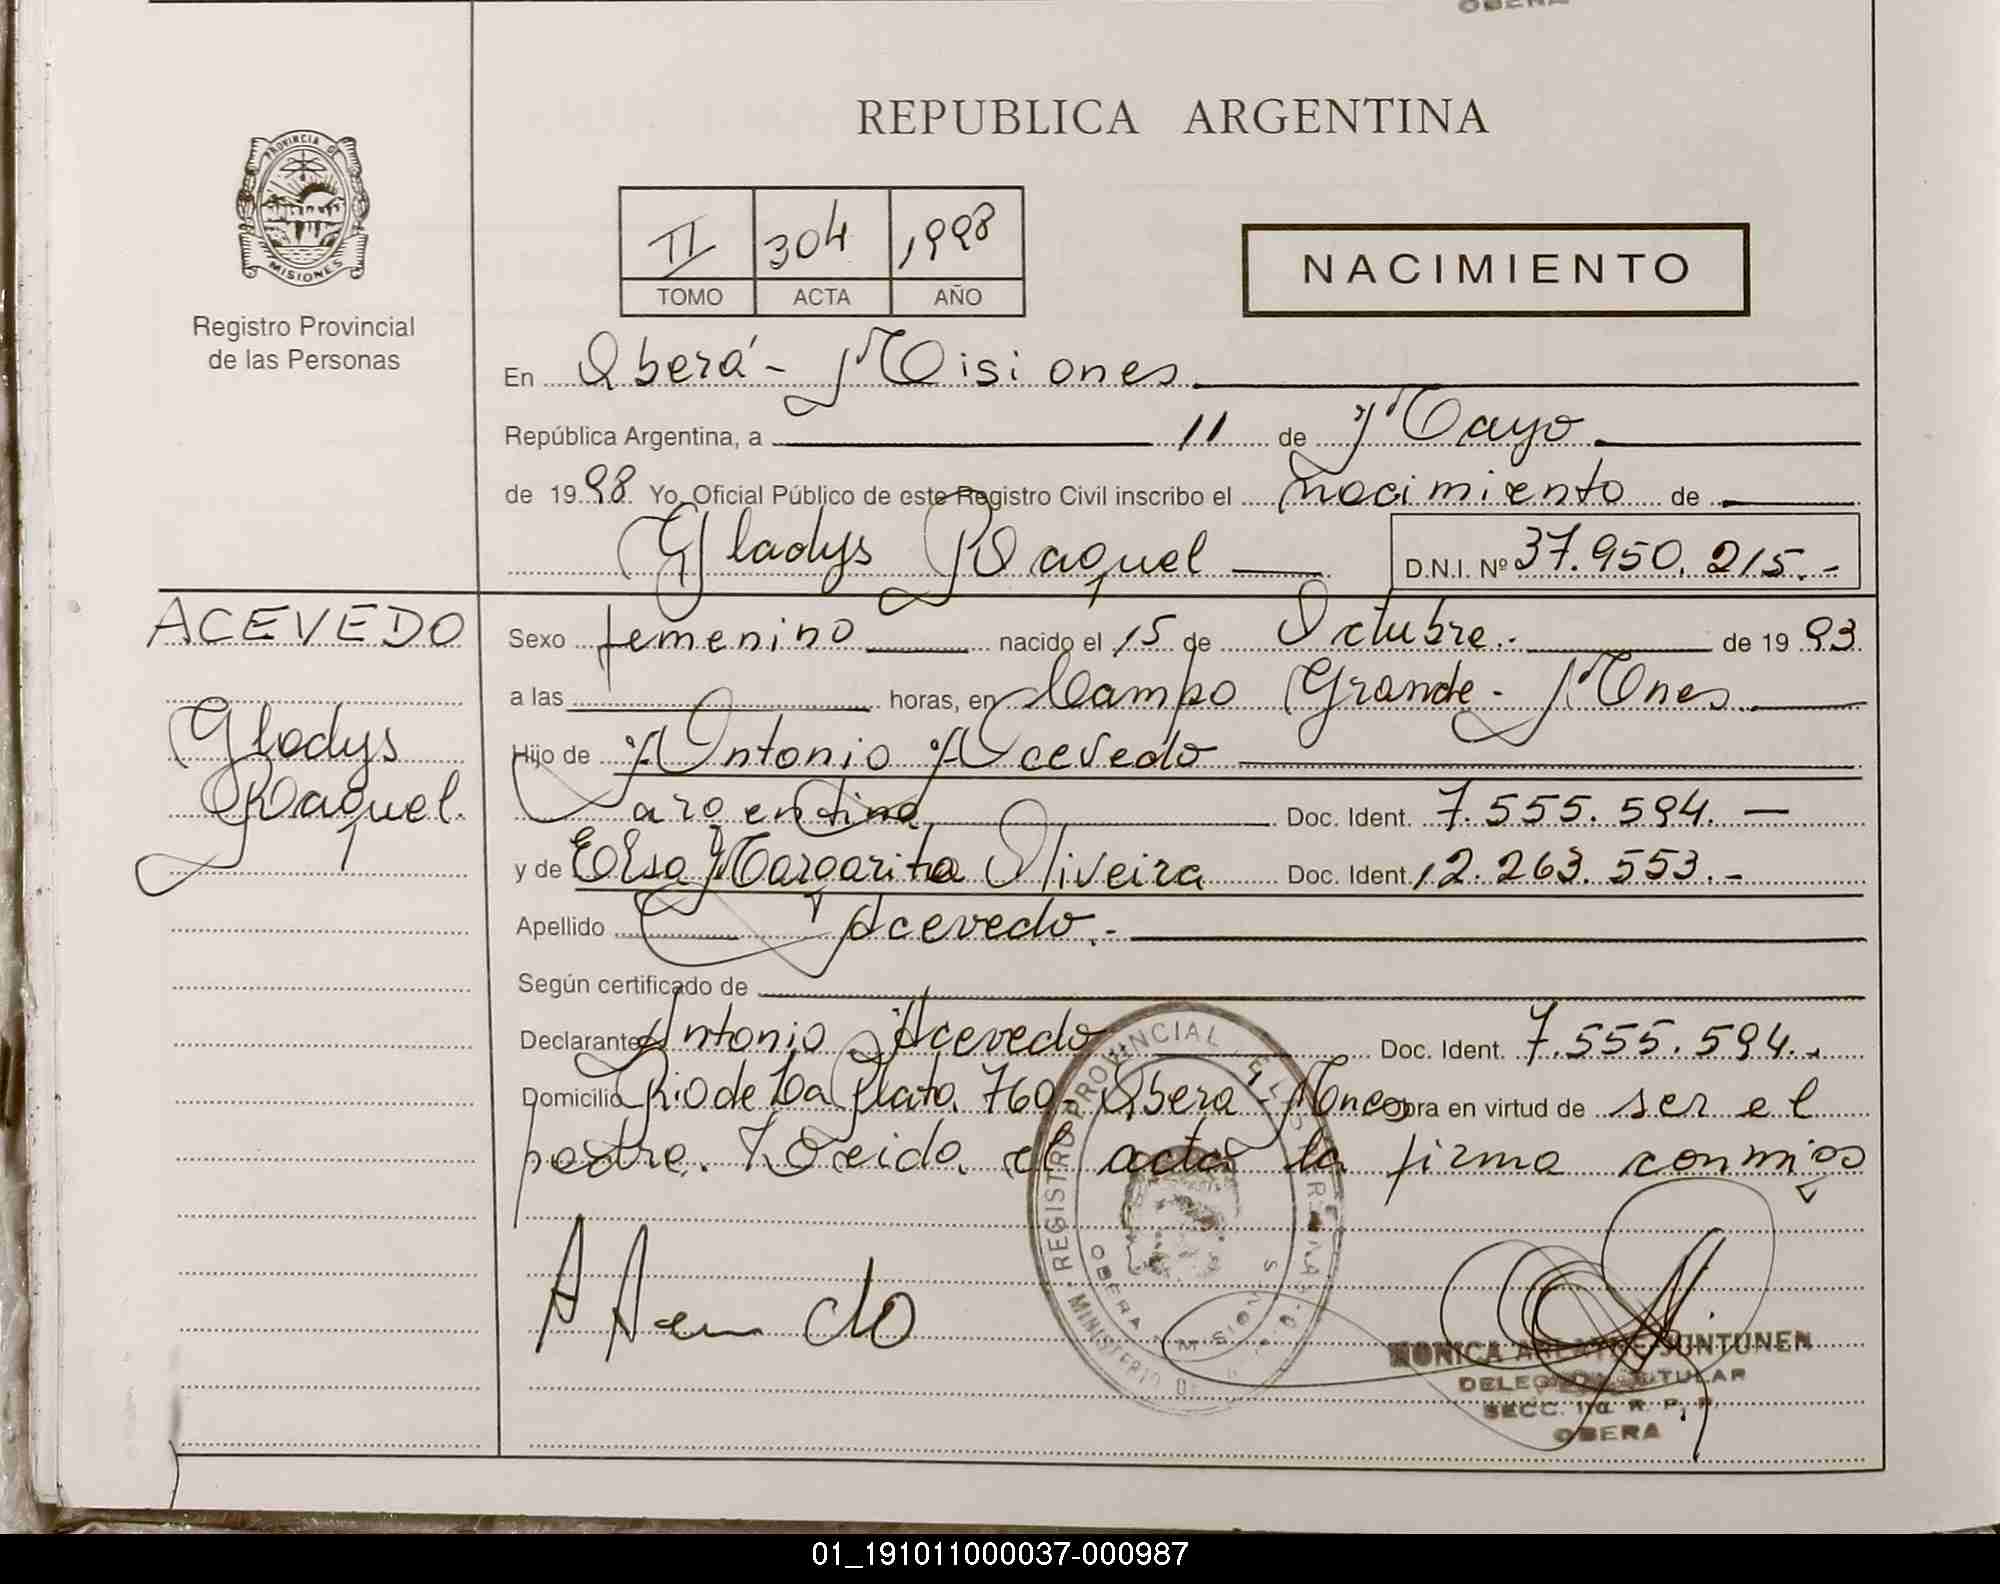 OBERA
PROVINCIA DE
MISIONES
Registro Provincial
de las Personas
REPUBLICA ARGENTINA
II 304 1998
TOMO ACTA AÑO
NACIMIENTO
En Oberá - Misiones
República Argentina, a 11 de Mayo
de 1998 Yo, Oficial Público de este Registro Civil inscribo el nacimiento de
Gladys Raquel D.N.I. Nº 37.950.215.-
ACEVEDO
Gladys
Raquel.
Sexo femenino nacido el 15 de Octubre.- de 1993
a las horas, en Campo Grande - Mnes
Hijo de Antonio Acevedo
argentino Doc. Ident. 7.555.594.-
y de Elsa Margarita Oliveira Doc. Ident. 12.263.553.-
Apellido Acevedo.-
Según certificado de
Declarante Antonio Acevedo Doc. Ident. 7.555.594.-
Domicilio Rio de La Plata 760 - Oberá - Mnes obra en virtud de ser el
padre. Leida el acta la firma conmigo
REGISTRO PROVINCIAL DE LAS PERSONAS
MINISTERIO DE
OBERA MISIONES
A Acevedo
MONICA JUNTUNEN
DELEGADA TITULAR
SECC. R. P. P.
OBERA
01_191011000037-000987